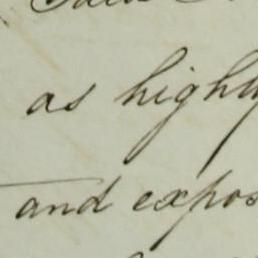 as highly
and expos